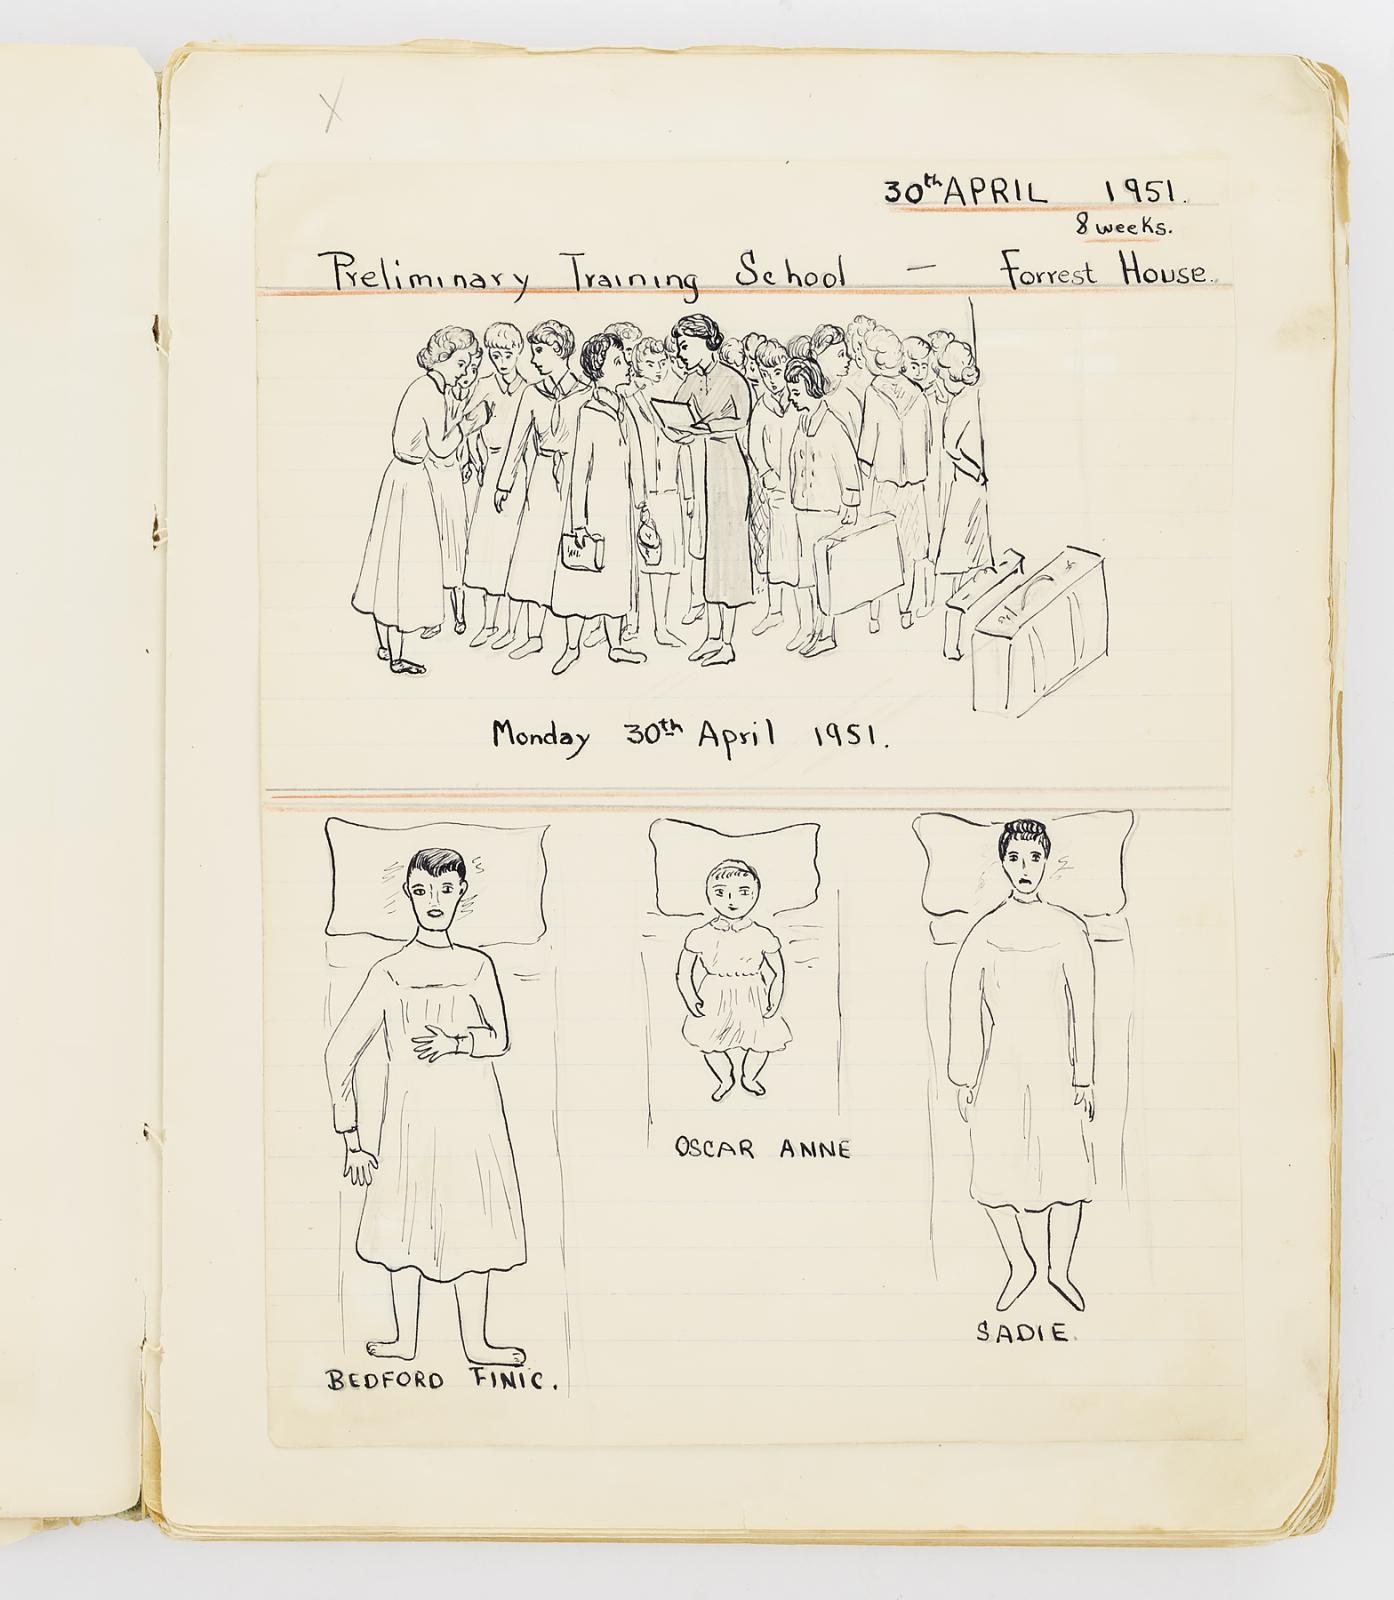 30th APRIL 1951.
8 weeks.
Preliminary Training School — Forrest House.
Monday 30th April 1951.
OSCAR ANNE
SADIE.
BEDFORD FINIC.